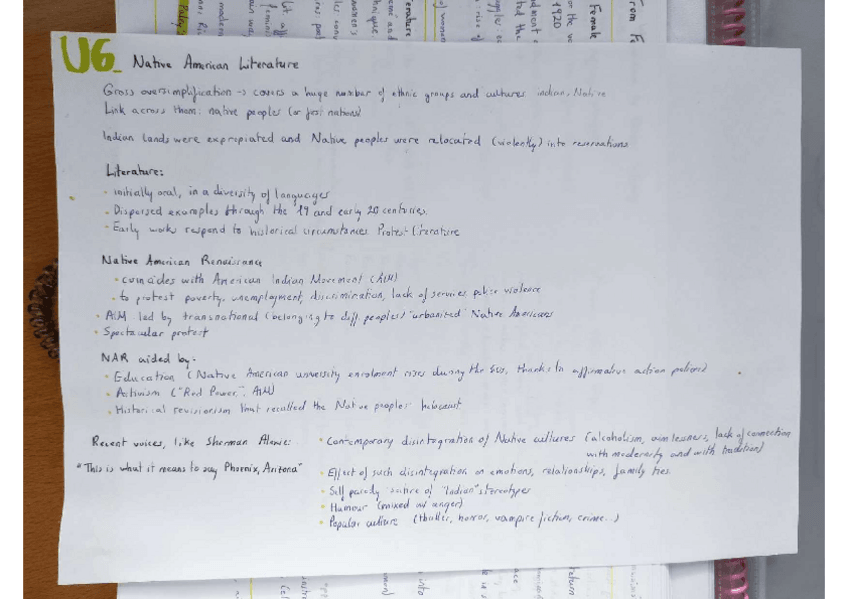 U6_ Native American Literature
Gross oversimplification → covers a huge number of ethnic groups and cultures indian, Native
Link across them: native peoples (or first nations)
Indian lands were expropiated and Native peoples were relocated (violently) into reservations
Literature:
• initially oral, in a diversity of languages
• Dispersed examples through the 19 and early 20 centuries.
• Early works respond to historical circumstances. Protest literature
Native American Renaissance
• coincides with American Indian Movement (AIM)
• to protest poverty, unemployment, discrimination, lack of services, police violence
• AIM led by transnational (belonging to diff. peoples) "urbanized" Native Americans
• Spectacular protest
NAR aided by:
• Education (Native American university enrolment rises during the 60s, thanks to affirmative action policies)
• Activism ("Red Power", AIM)
• Historical revisionism that recalled the Native peoples' holocaust
Recent voices, like Sherman Alexie:
"This is what it means to say Phoenix, Arizona"
• Contemporary disintegration of Native cultures (alcoholism, aimlessness, lack of connection
with modernity and with tradition)
• Effect of such disintegration on emotions, relationships, family ties
• Self parody satire of "Indian" stereotypes
• Humour (mixed w/ anger)
• Popular culture (thriller, horror, vampire fiction, crime...)
Female
1920